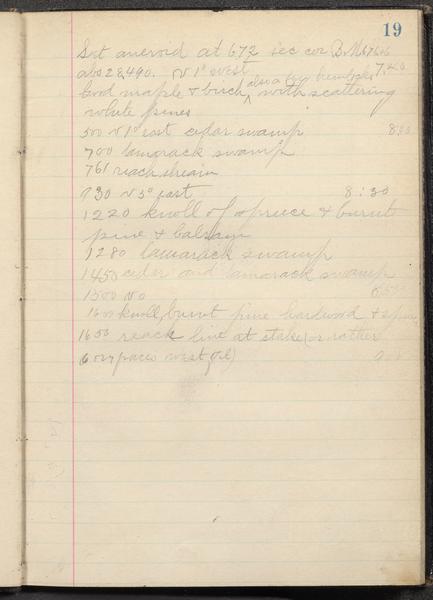 19
Set aneroid at 672 sec cor B.M. 676.6
abs 28,490. N 1° West 7:20
Good maple & birch, also a few hemlocks with scattering
white pines
500 N 1° east cedar swamp 8:00
700 tamarack swamp
761 reach stream
930 N 3° east 8:30
1220 knoll of spruce & burnt
pine & balsam
1280 tamarack swamp
1450 cedar and tamarack swamp
1500 No
1600 knoll, burnt pine hardwood &
1650 reach line at stake (or rather
6 or 7 paces west of it)